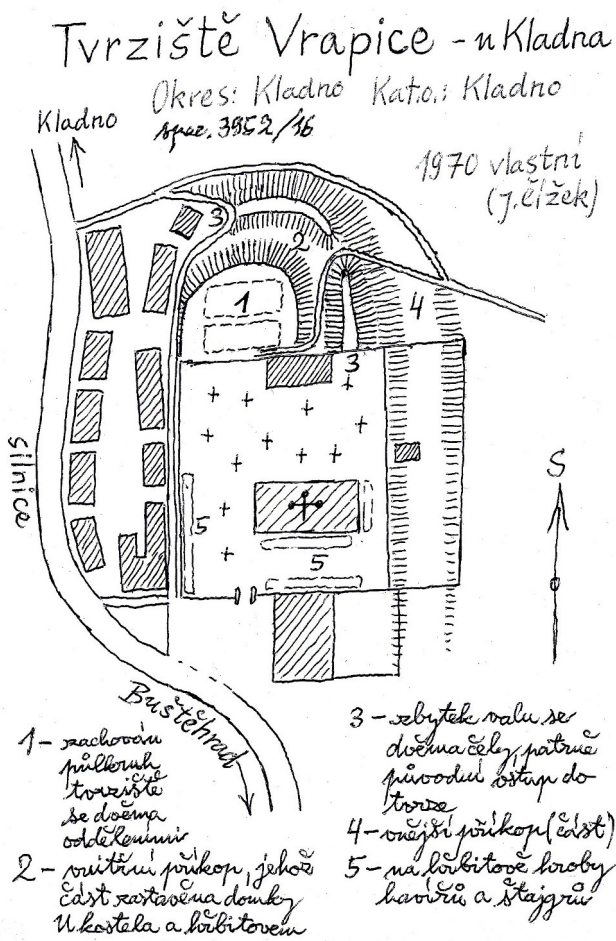 Tvrziště Vrapice - u Kladna
Okres: Kladno Kat.o.: Kladno
spec. 3952/16
Kladno
1970 vlastní
(J. Čížek)
3
2
1
4
3
silnice
S
5
5
Buštěhrad
1 - zachován
půlkruh
tvrziště
se dvěma
odděleními
2 - vnitřní příkop, jehož
část zastavěna domky
U kostela a hřbitovem
3 - zbytek valu se
dvěma čely, patrně
původní vstup do
tvrze
4 - vnější příkop (část)
5 - na hřbitově hroby
havířů a štajgrů